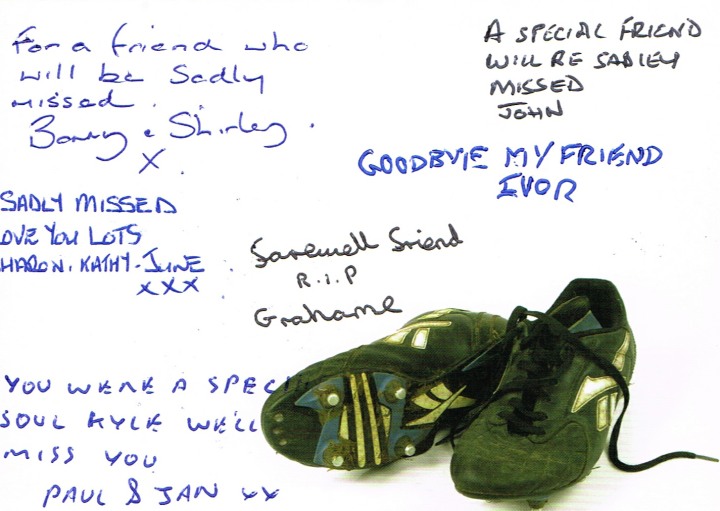 For a friend who
will be Sadly
missed.
Barry & Shirley.
X.
A SPECIAL FRIEND
WILL BE SADLEY
MISSED
JOHN
GOODBYE MY FRIEND
IVOR
SADLY MISSED
OVE YOU LOTS
HARON. KATHY. JUNE
XXX
Farewell Friend
R.I.P
Grahame
YOU WERE A SPECI
SOUL KYLE WE'LL
MISS YOU
PAUL & JAN XX